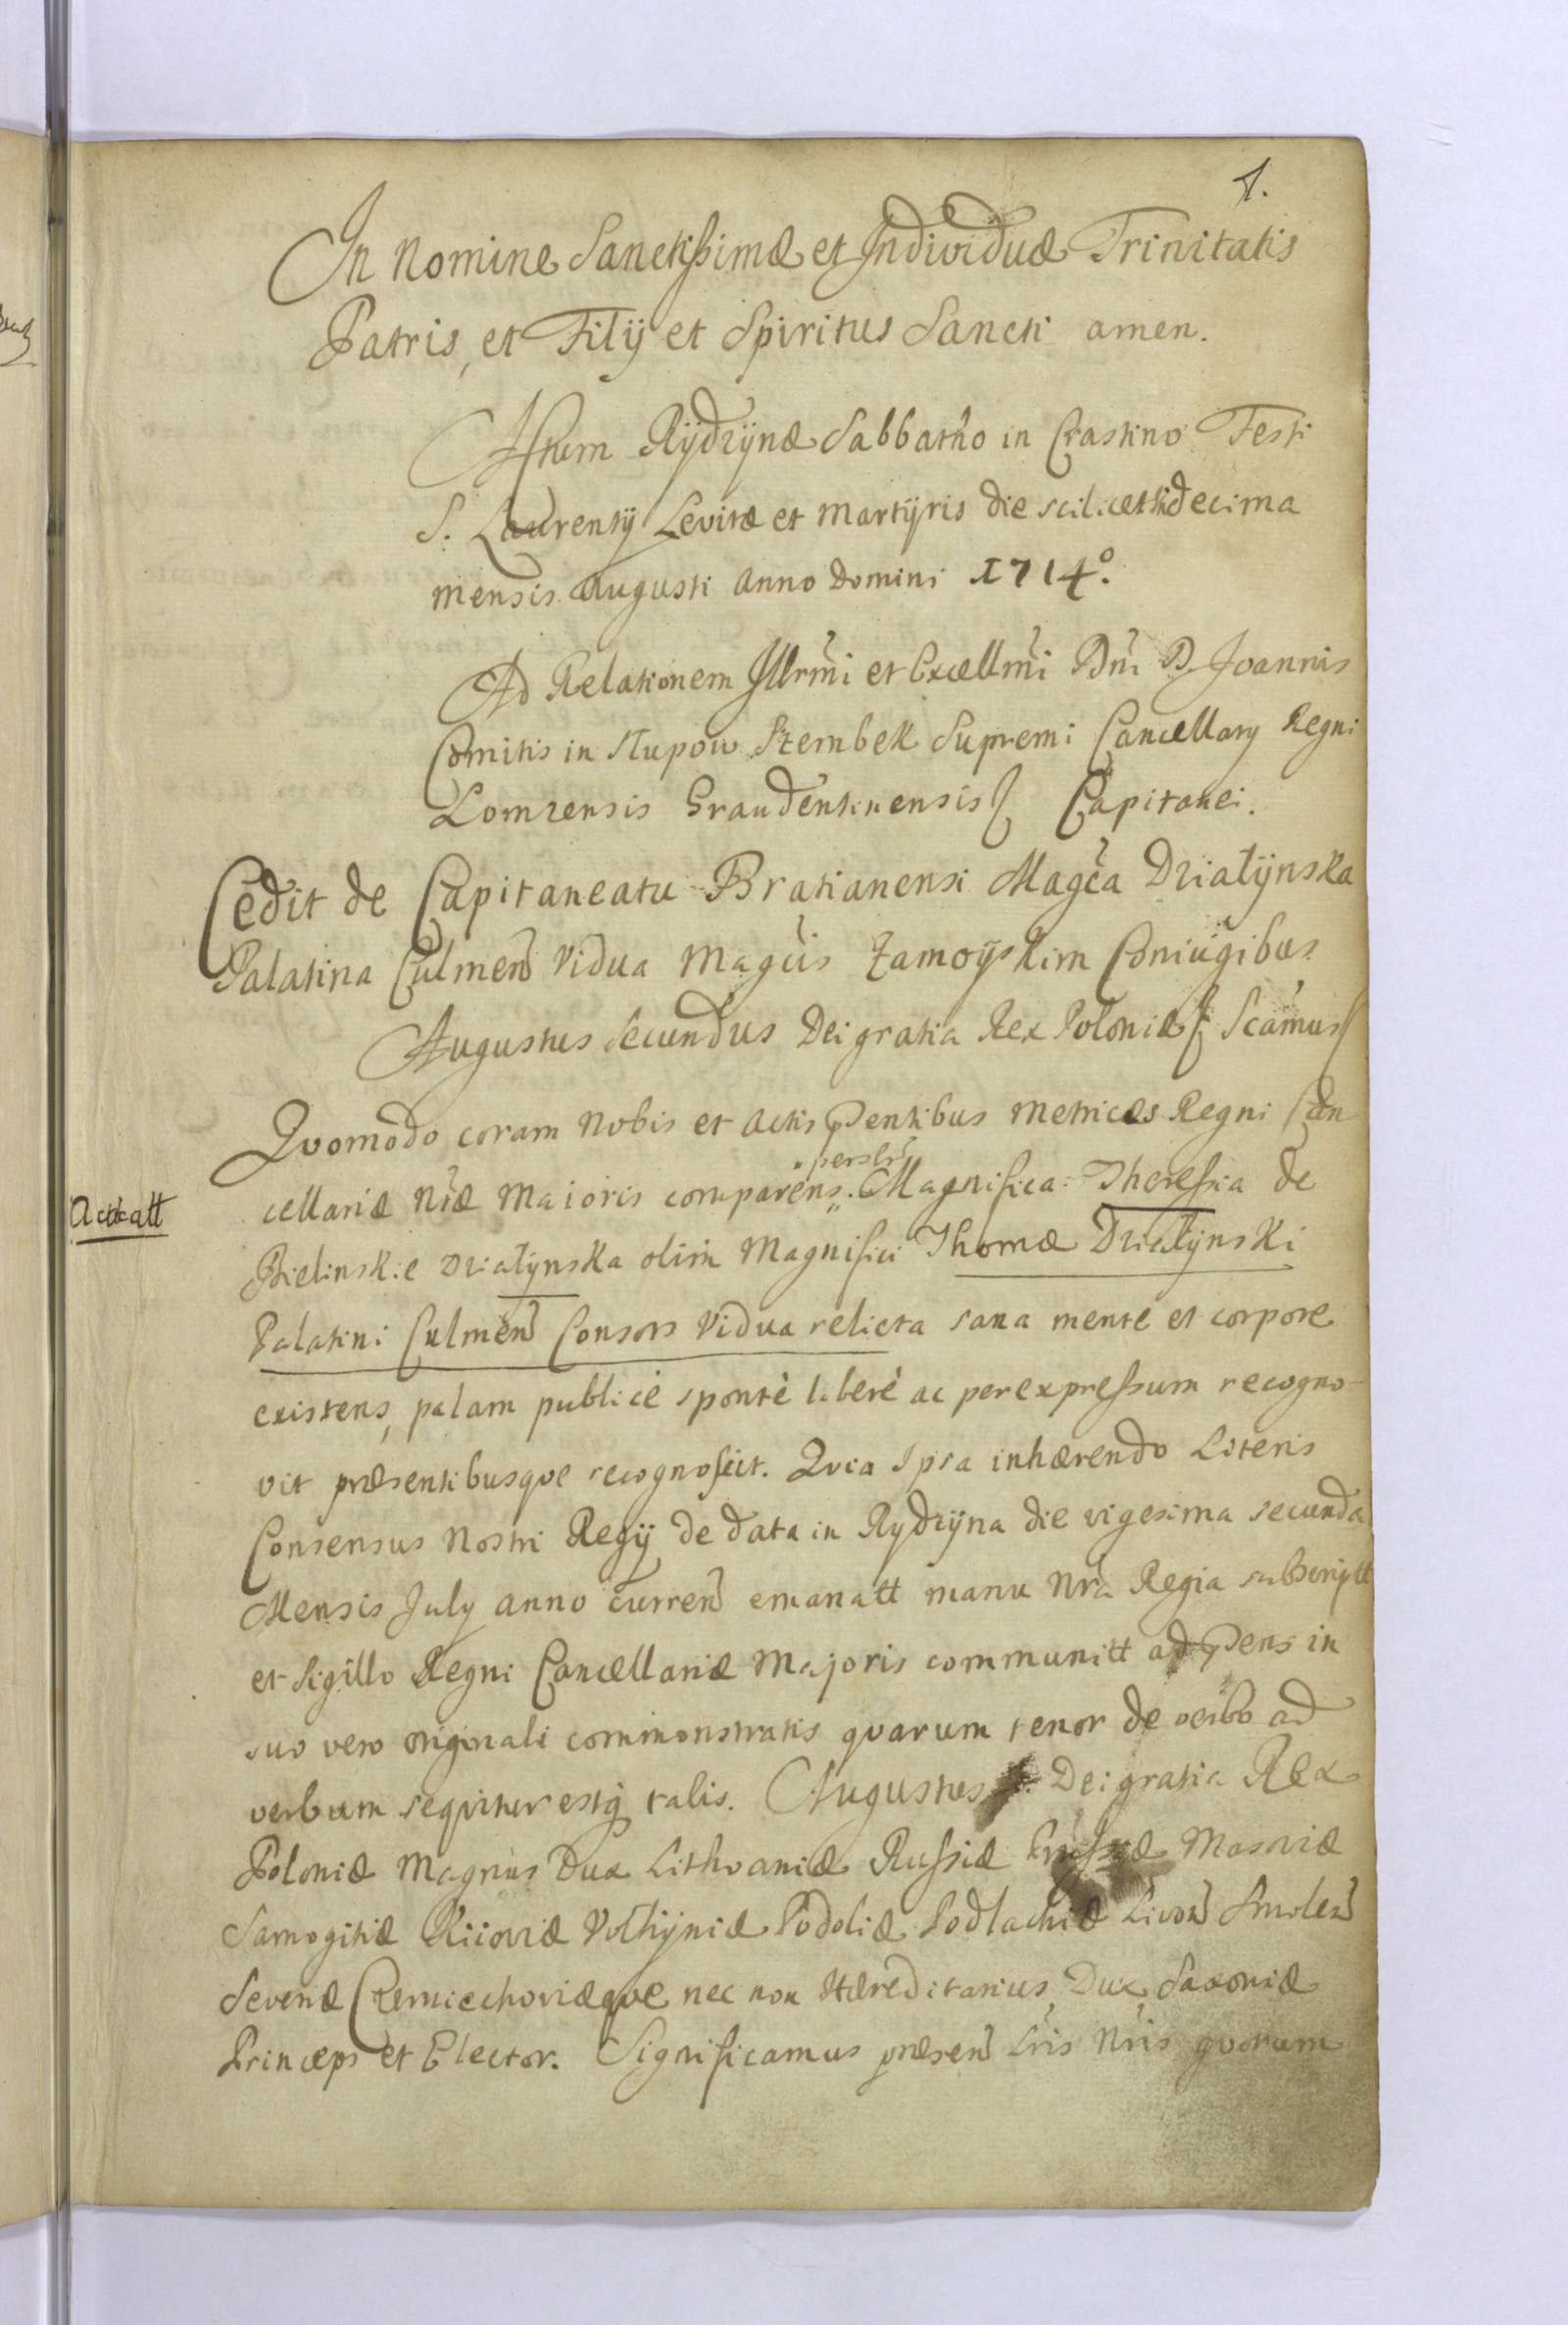 1.
In Nomine Sanctissimæ et Individuæ Trinitatis
Patris, et Filij et Spiritus Sancti amen.
Actum Rÿdzÿnæ Sabbatho in Crastino Festi
S. Laurentij Levitæ et Martÿris die scilicet decima
mensis Augusti Anno Domini 1714º.
Ad Relationem Illrmi et Excellmi Dni D. Joannis
Comitis in Słupow Szembek Supremi Cancellary Regni
Lomzensis Graudentinensis Capitanei.
Cedit de Capitaneatu Bratianensi Magca Działÿnska
Palatina Culmen Vidua Magcis Zamoÿskim Coniugibus
Augustus Secundus Dei gratia Rex Poloniæ Scamus
Qvomodo coram Nobis et Actis pntibus Metrices Regni Can
cellariæ Nræ Maioris comparens persler Magnifica Theressia de
Acticatt
Bielinskie Działÿnska olim Magnifici Thomæ Działÿnski
Palatini Culmen Consors Vidua relicta sana mente et corpore
existens, palam publicè spontè liberè ac per expressum recogno-
vit præsentibusqve recognoscit. Qvia Ipsa inhærendo Literis
Consensus Nostri Regij de data in Rydzÿna die vigesima secunda
Mensis July anno curren emanatt manu Nra Regia subscriptt
et Sigillo Regni Cancellariæ Majoris communitt ad pens in
suo vero originali commonstratis qvarum tenor de verbo ad
verbum seqvitur estq talis. Augustus Dei gratia Rex
Poloniæ Magnus Dux Lithvaniæ Russiæ Prussiæ Masoviæ
Samogitiæ Kiioviæ Volhÿniæ Podoliæ Podlachiæ Livon Smolen
Severiæ Czerniechoviæqve nec non Hæreditarius Dux Saxoniæ
Princeps et Elector. Significamus præsen Lris Nris qvorum